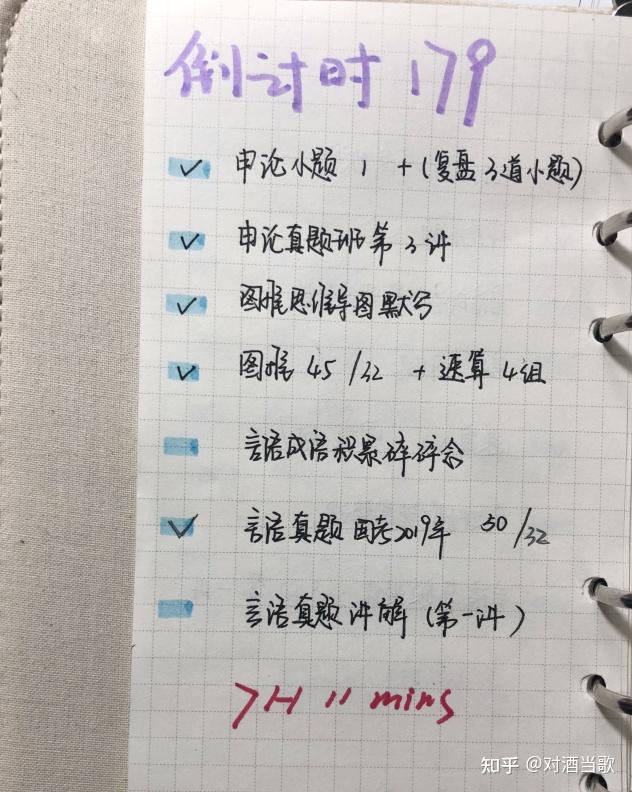 倒计时 179
✓ 申论小题 1 +(复盘3道小题)
✓ 申论真题班第3讲
✓ 图推思维导图默写
✓ 图推 45/32 + 速算4组
言语成语积累碎碎念
✓ 言语真题国考2019年 50/32
言语真题讲解(第一讲)
7H 11 mins
知乎 @对酒当歌